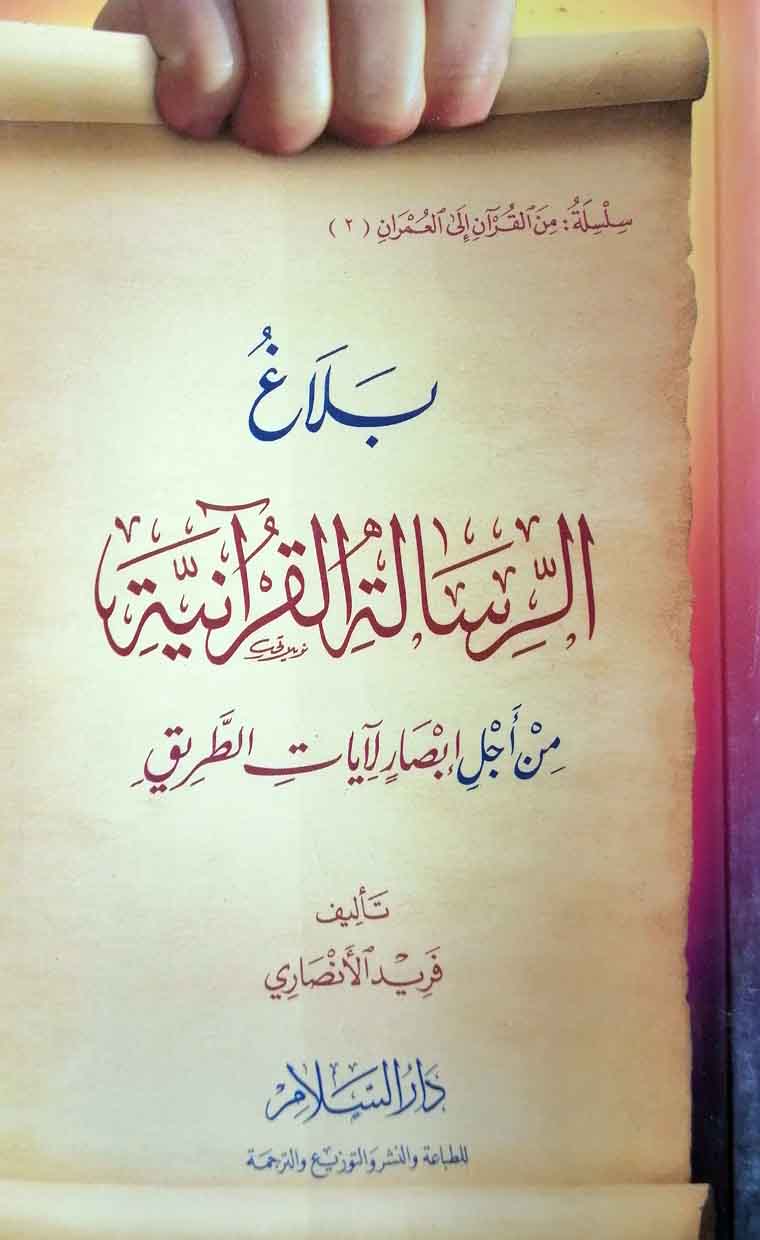 سِلْسِلَةُ: مِنَ ٱلْقُرْآنِ إِلَى ٱلْعُمْرَانِ (٢)
بَلَاغُ
الرِّسَالَةِ القُرْآنِيَّةِ
مِنْ أَجْلِ إِبْصَارٍ لِآيَاتِ الطَّرِيقِ
تَأْلِيف
فَرِيْد ٱلأَنْصَارِي
دَارُ السَّلَامِ
للطباعة والنشر والتوزيع والترجمة